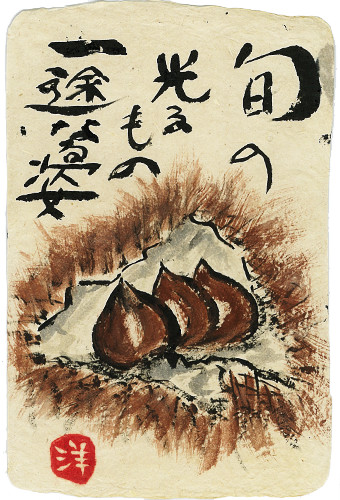 旬の
光る
もの
一途な姿
洋